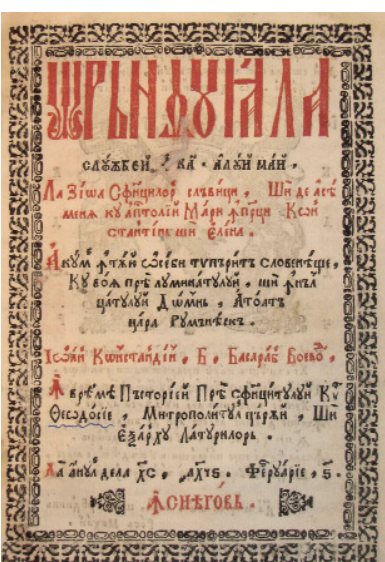 Ѡрѫндуꙗла
слꙋжбей , ка · алꙋй май ·
Ла Зіѡа Сфѝцилор слъвици , Ши де асѣ
менѣ кꙋ апⷭтолїй Марй ꙟпⷬ҇ци Кѡн
стантін ши Елена .
Акꙋм ꙟтѫю ѡсебй тѵпърит словенѣще ,
Кꙋ воꙗ прѣ лꙋминатꙋлꙋй , ши ꙟнъл
цатꙋлꙋй Дѡмнь , Атоатъ
цара Рꙋмънѣскъ .
Іѡан Кѡнстандін , Б , Басараб Воевод ,
ꙟ врѣмѣ Пъсторїей Прѣ сфинцитꙋлꙋй Кѵ̈
Ѳеѡдосїе , Митрополитꙋл церїй , Ши
Еѯархꙋ Латꙋрилорь .
Ла анꙋл дела х҃с , ҂ахч҃ѕ . Феврꙋарїе , ѕ҃ .
ꙟ Снѣгов .